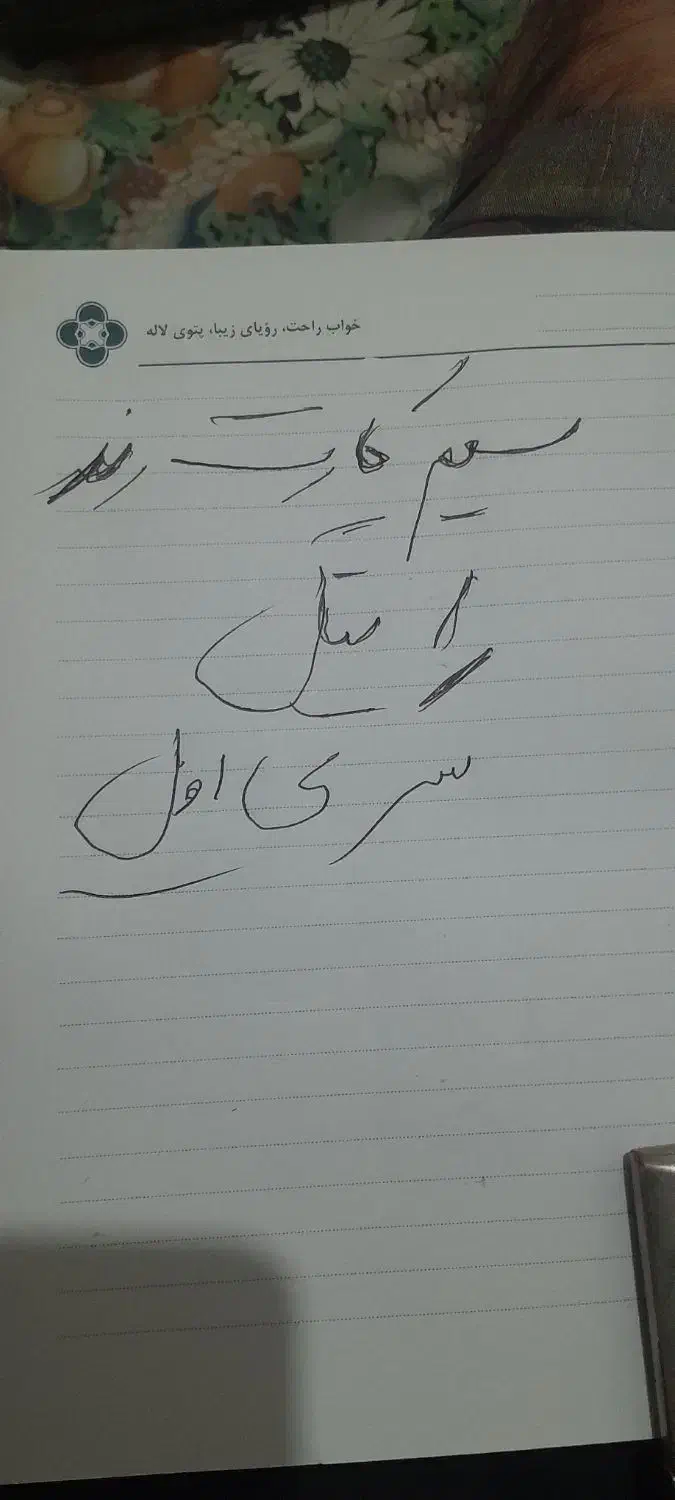 خواب راحت، رؤیای زیبا، پتوی لاله
سیم کارت رند
رایتل
سری اول